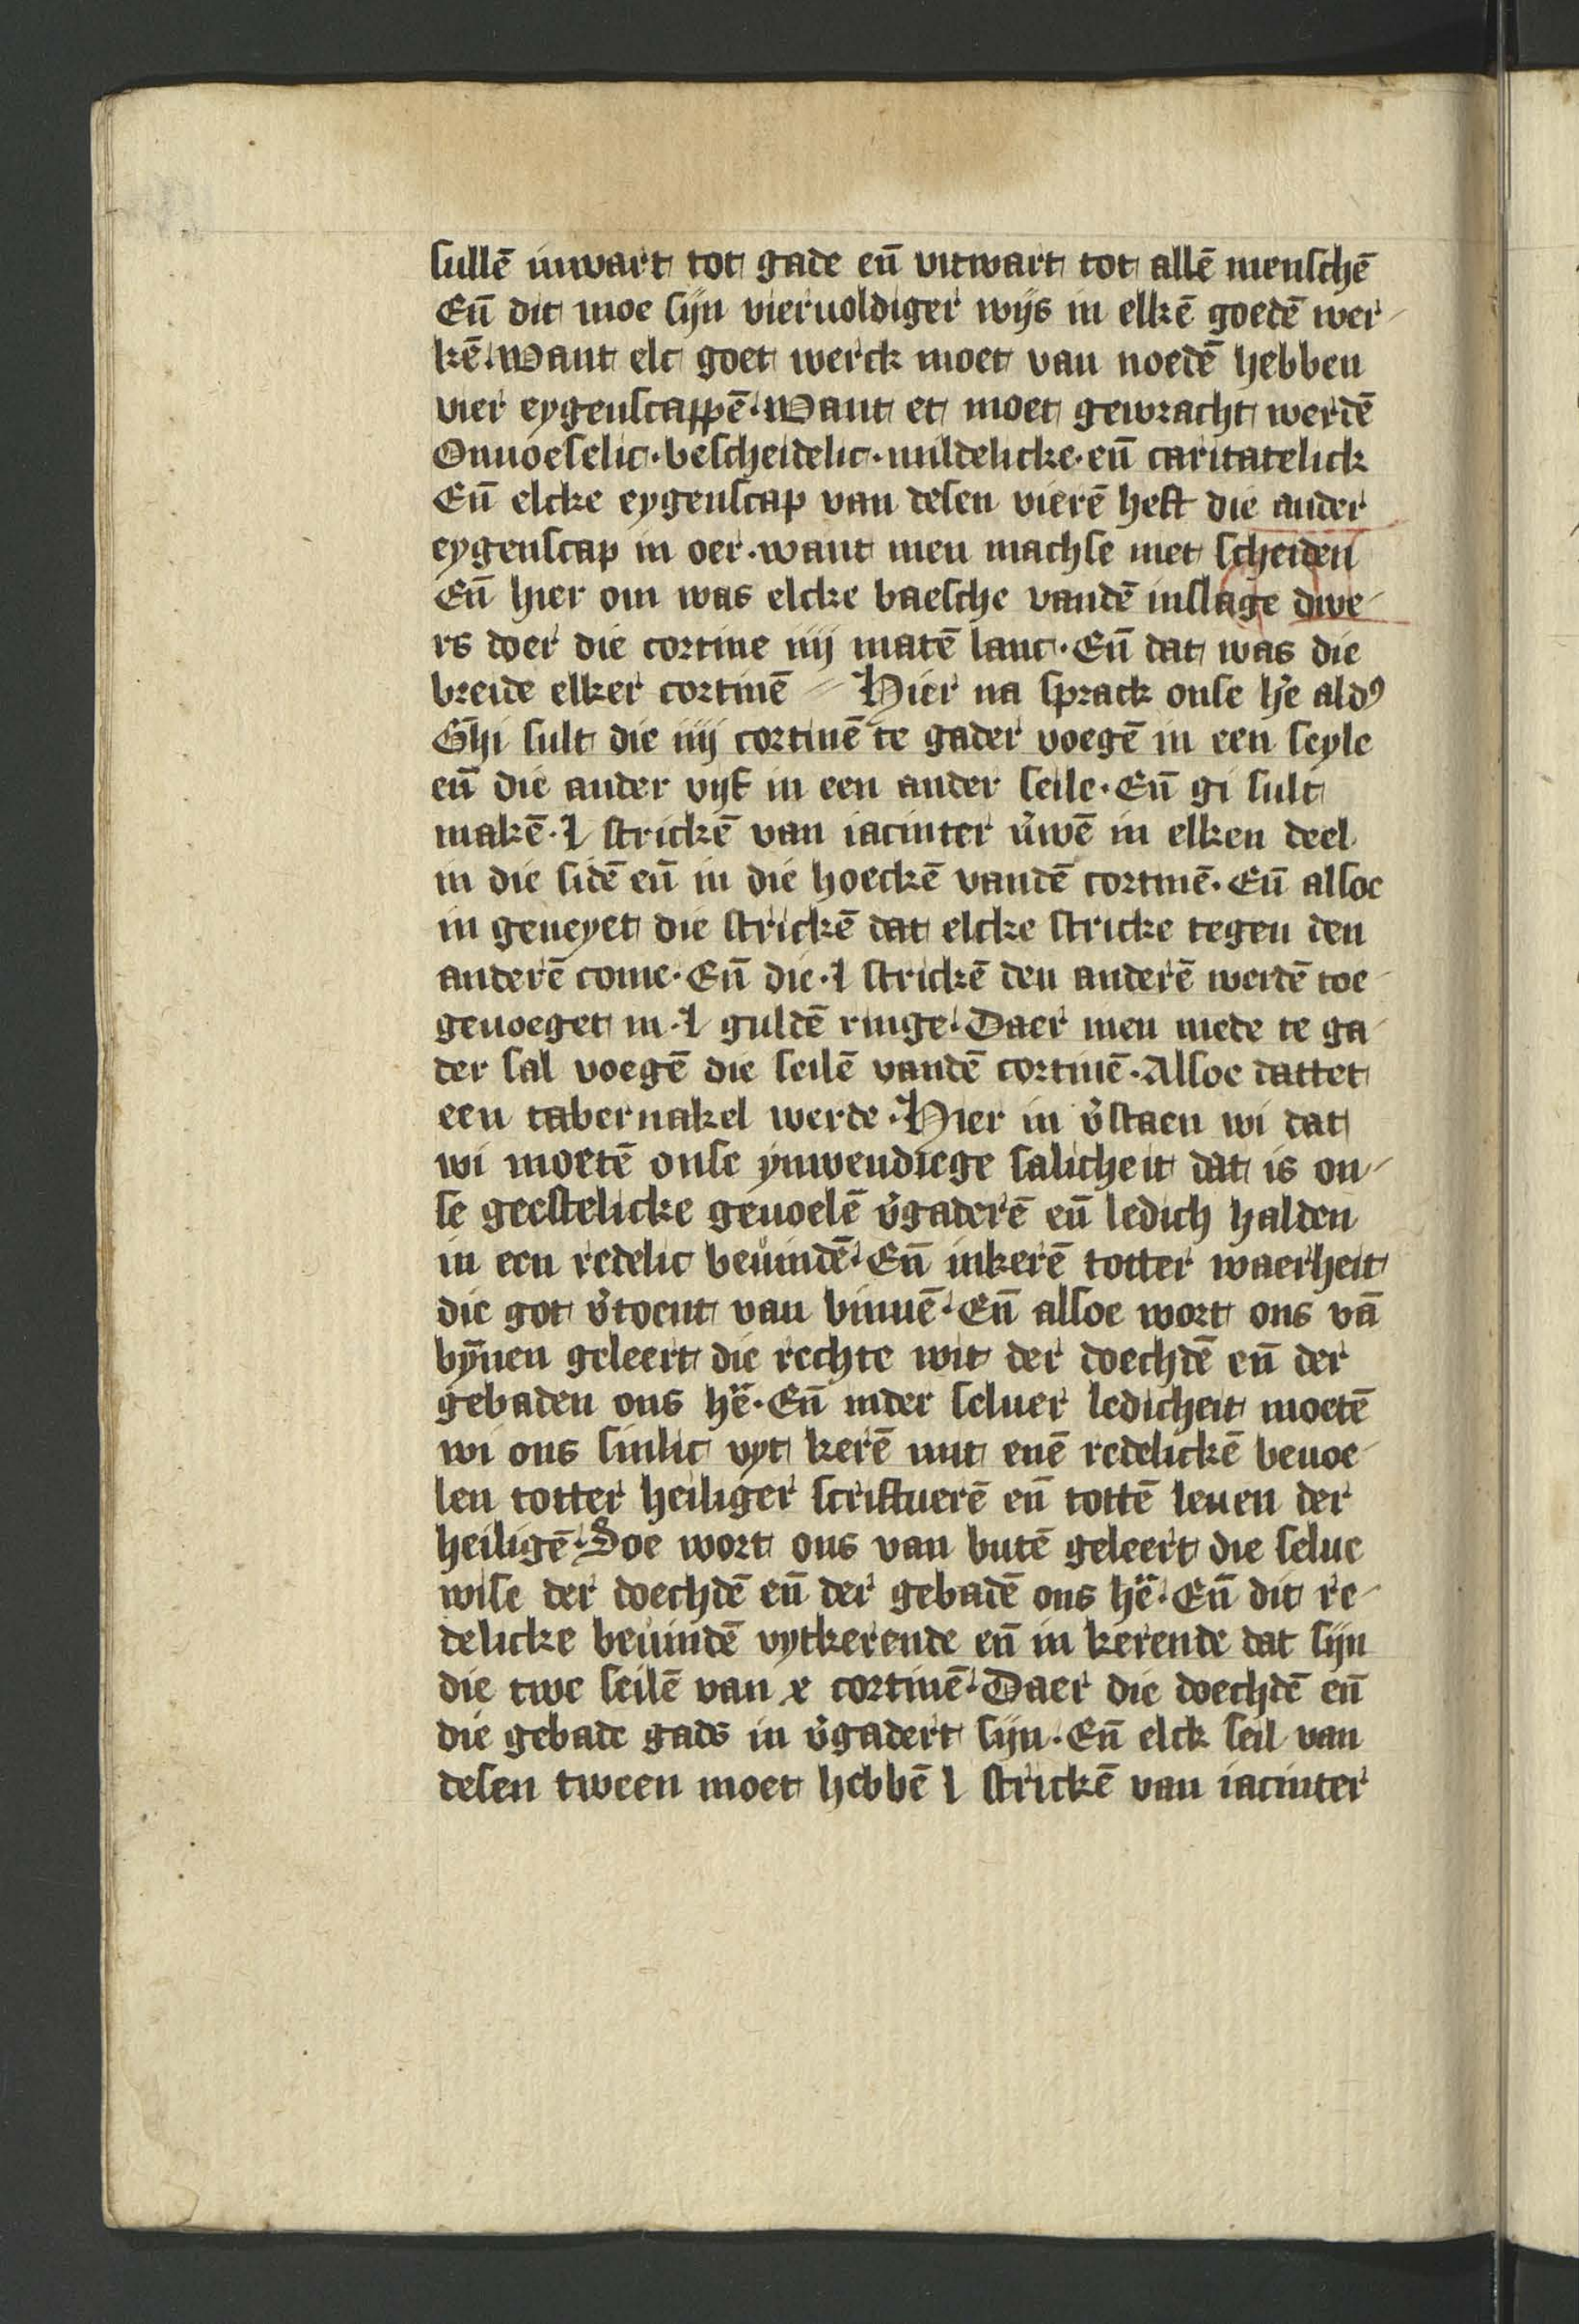 sullē inwart tot gade en̄ vitwart tot allē menschē
En̄ dit moe sijn vieruoldiger wijs in elkē goedē wer-
kē. want elc goet werck moet van noedē hebben
vier eygenscappē. Want et moet gewracht werdē
Onuoeselic. bescheidelic. mildelicke. en̄ caritatelick
En̄ elcke eygenscap van desen vierē heft die ander
eygenscap in oer. want men machse niet scheiden
En̄ hier om was elcke baesche vandē inslage dwe-
rs doer die cortine iiij matē lanc. En̄ dat was die
breide elker cortinē Hier na sprack onse h̄e ald9
Ghi sult die iiij cortinē te gader voegē in een seyle
en̄ die ander vijf in een ander seile. En̄ gi sult
makē. l strickē van iacinter v̓wē in elken deel
in die sidē en̄ in die hoeckē vandē cortinē. En̄ alsoe
in geneyet die strickē dat elcke stricke tegen den
anderē come. En̄ die. l strickē den anderē werdē toe-
geuoeget in. l guldē ringe. Daer men mede te ga-
der sal voegē die seilē vandē cortinē. Alsoe dattet
een tabernakel werde. Hier in v̓staen wi dat
wi moetē onse ynwendiege salicheit dat is on-
se geestelicke geuoelē v̓gaderē en̄ ledich halden
in een redelic beuindē. En̄ inkerē totter waerheit
die got v̓toent van binnē. En̄ alsoe wort ons vā
bȳnen geleert die rechte wit der doechdē en̄ der
gebaden ons hē. En̄ inder seluer ledicheit moetē
wi ons sinlic vyt kerē mit enē redelickē beuoe-
len totter heiliger scriftuerē en̄ tottē leuen der
heiligē. Soe wort ons van butē geleert die selue
wise der doechdē en̄ der gebadē ons hē. En̄ dit re-
delicke beuindē vytkerende en̄ in kerende dat sijn
die twe seilē van x cortinē. Daer die doechdē en̄
die gebade gads in v̓gadert sijn. En̄ elck seil van
desen tween moet hebbē l strickē van iacinter